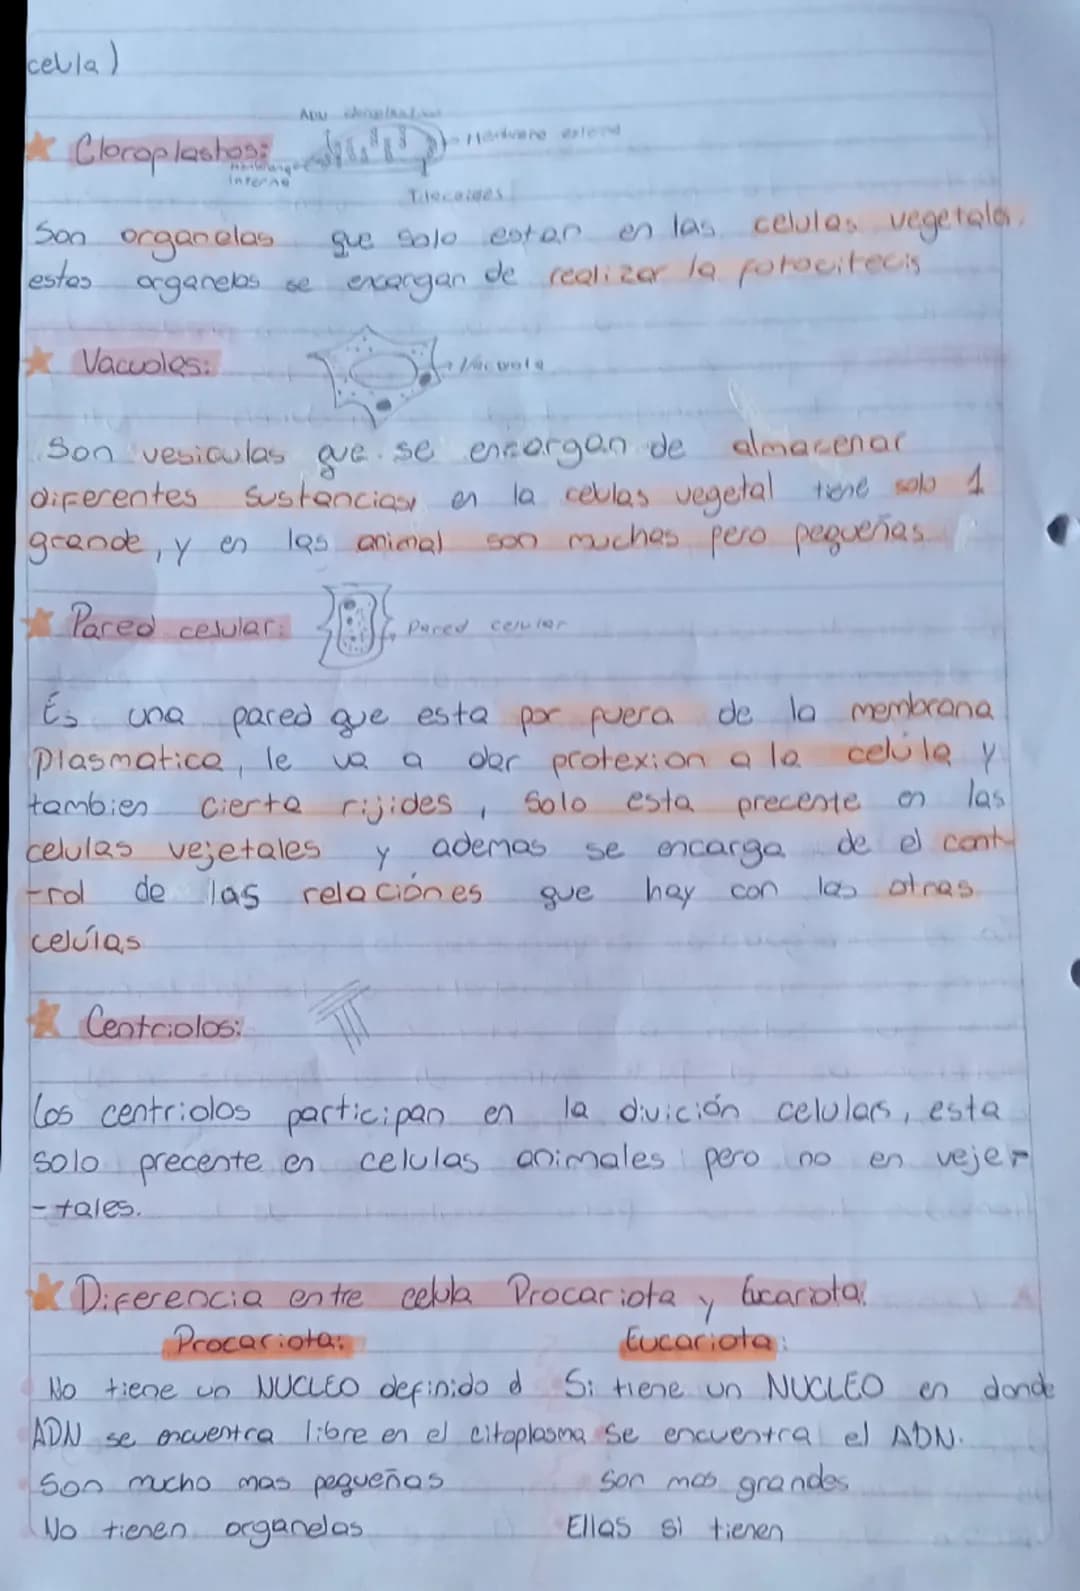 celula)
ADN
Membrana externa
★ Cloroplastos:
interna
Tilacoides
Son organelas que solo estan en las celulas vegetales.
estas organelas se encargan de realizar la fotocitecis
★ Vacuolas:
Vacuola
Son vesiculas que se encargan de almacenar
diferentes sustancias, en la celulas vegetal tiene solo 1
grande, y en las animal son muchas pero pequeñas
★ Pared celular:
Pared celular
És una pared que esta por fuera de la membrana
Plasmatica, le va a dar protexion a la celúla y
tambien cierta rijides, Solo esta precente en las
celulas vejetales y ademas se encarga de el cont
-rol de las relaciónes que hay con las otras
celúlas
★ Centriolos:
los centriolos participan en la divición celulars, esta
solo precente en celulas animales pero no en vejer
-tales.
★ Diferencia entre celula Procariota y Eucariota:
Procariota: Eucariota:
No tiene un NUCLEO definido d Si tiene un NUCLEO en donde
ADN se encuentra libre en el citoplasma Se encuentra el ADN.
Son mucho mas pequeñas Son mas grandes
No tienen organelas Ellas si tienen